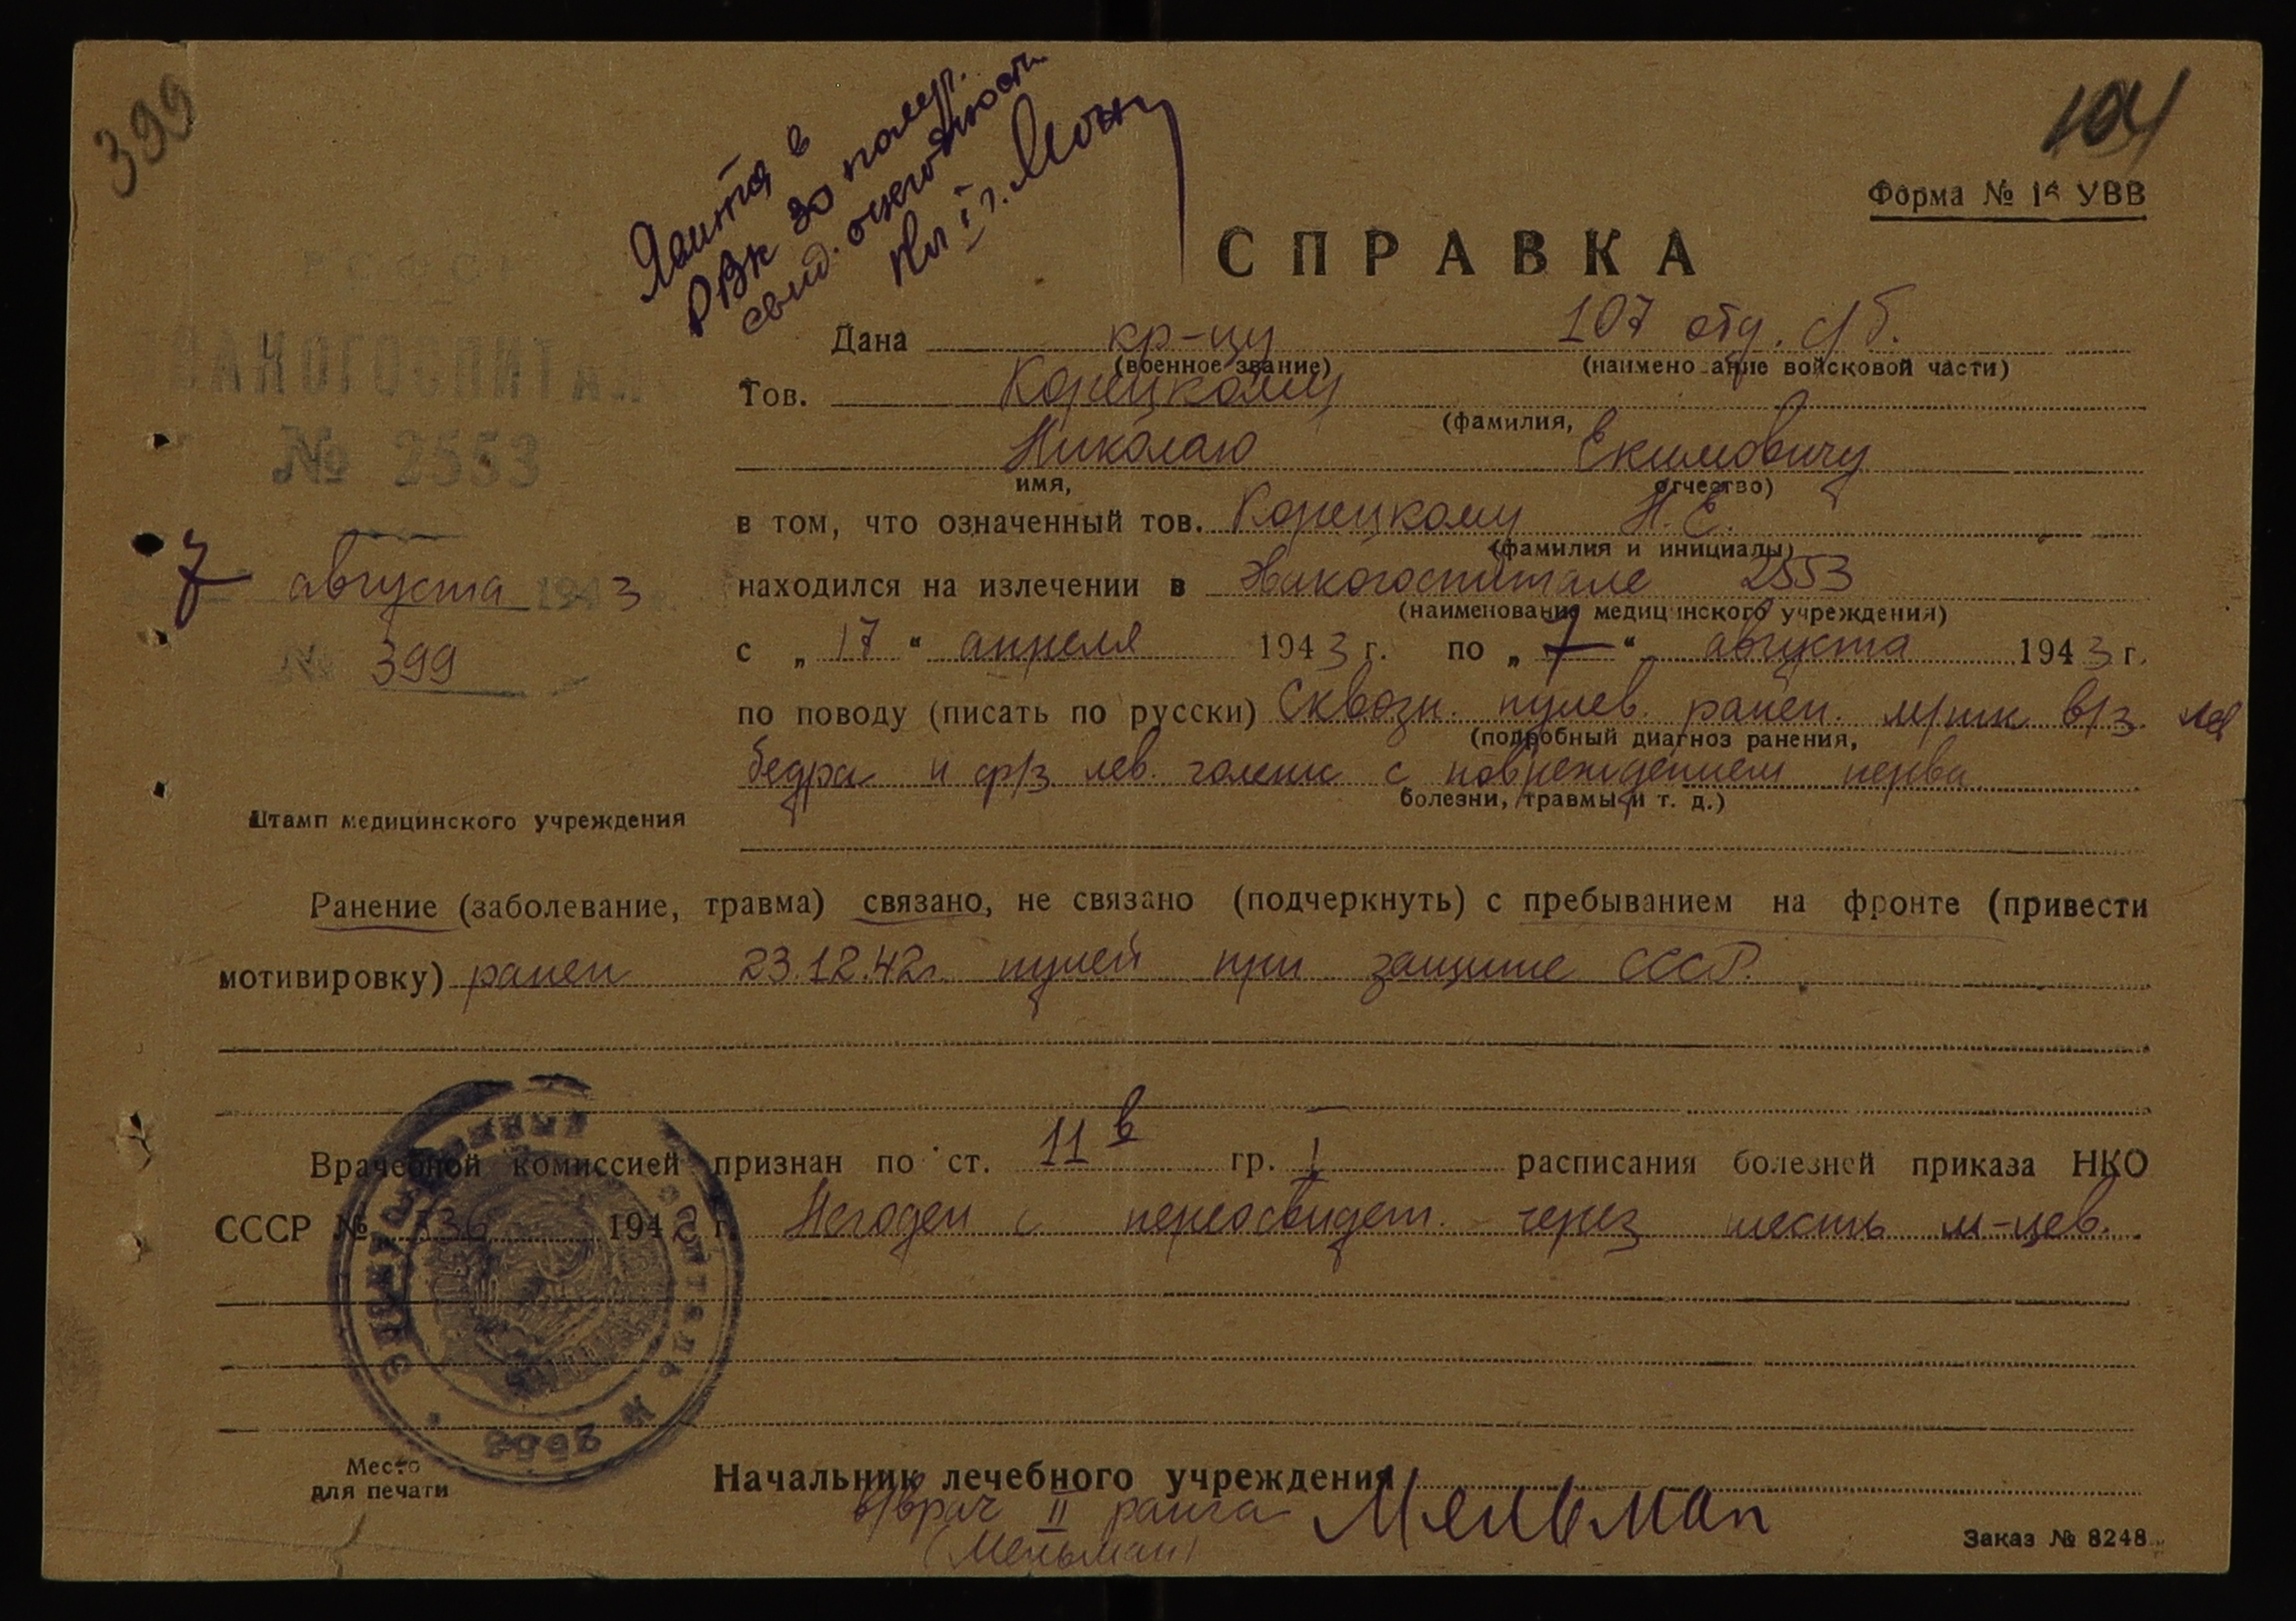 399
104
Явится в
РВК за получ.
свид. о негодности
Форма № 16 УВВ
СПРАВКА
ЭВАКОГОСПИТАЛЬ
№ 2553
7 августа 1943
№ 399
Штамп медицинского учреждения
Дана кр-цу 107 отд. с/б.
(военное звание) (наименование войсковой части)
Тов. Корецкому
(фамилия,
Николаю Екимовичу
имя, отчество)
в том, что означенный тов. Корецкому Н. Е.
(фамилия и инициалы)
находился на излечении в Эвакогоспитале 2553
(наименование медицинского учреждения)
с „17“ апреля 1943 г. по „7“ августа 1943 г.
по поводу (писать по русски) Сквозн. пулев. ранен. м/тк в/з лев
(подробный диагноз ранения,
бедра и ср/з лев. голени с повреждением нерва
болезни, травмы и т. д.)
Ранение (заболевание, травма) связано, не связано (подчеркнуть) с пребыванием на фронте (привести
мотивировку) ранен 23.12.42г. пулей при защите СССР.
Врачебной комиссией признан по ст. 11 в гр. I расписания болезней приказа НКО
СССР № 336 1942 г. Негоден с переосвидет. через шесть м-цев.
Место
для печати
Начальник лечебного учреждения Мельман
в/врач II ранга
(Мельман)
Заказ № 8248